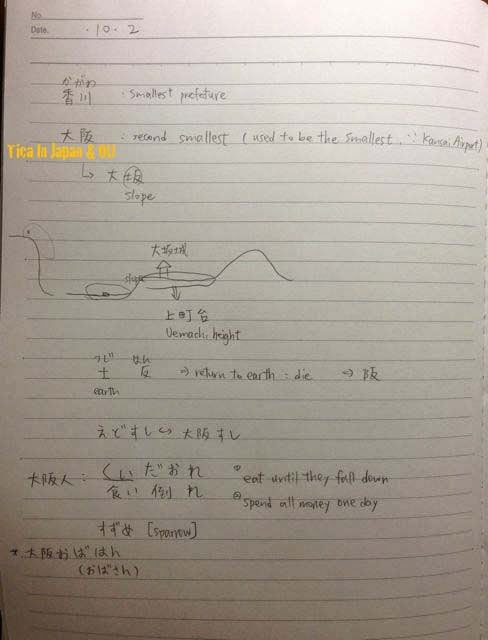 No.
Date. ・10・2
かがわ
香川 ・smallest prefeture
大阪 : second smallest (used to be the smallest, ∵ Kansai Airport)
Tica In Japan & OU
↳ 大坂
slope
大坂城
slope
上町台
Uemachi height
つち はん
土 反 ⇒ return to earth : die ⇒ 阪
earth
えどすし ↔ 大阪すし
大阪人 : くいだおれ ① eat until they fall down
食い倒れ ② spend all money one day
すずめ [sparrow]
* 大阪おばはん
(おばさん)